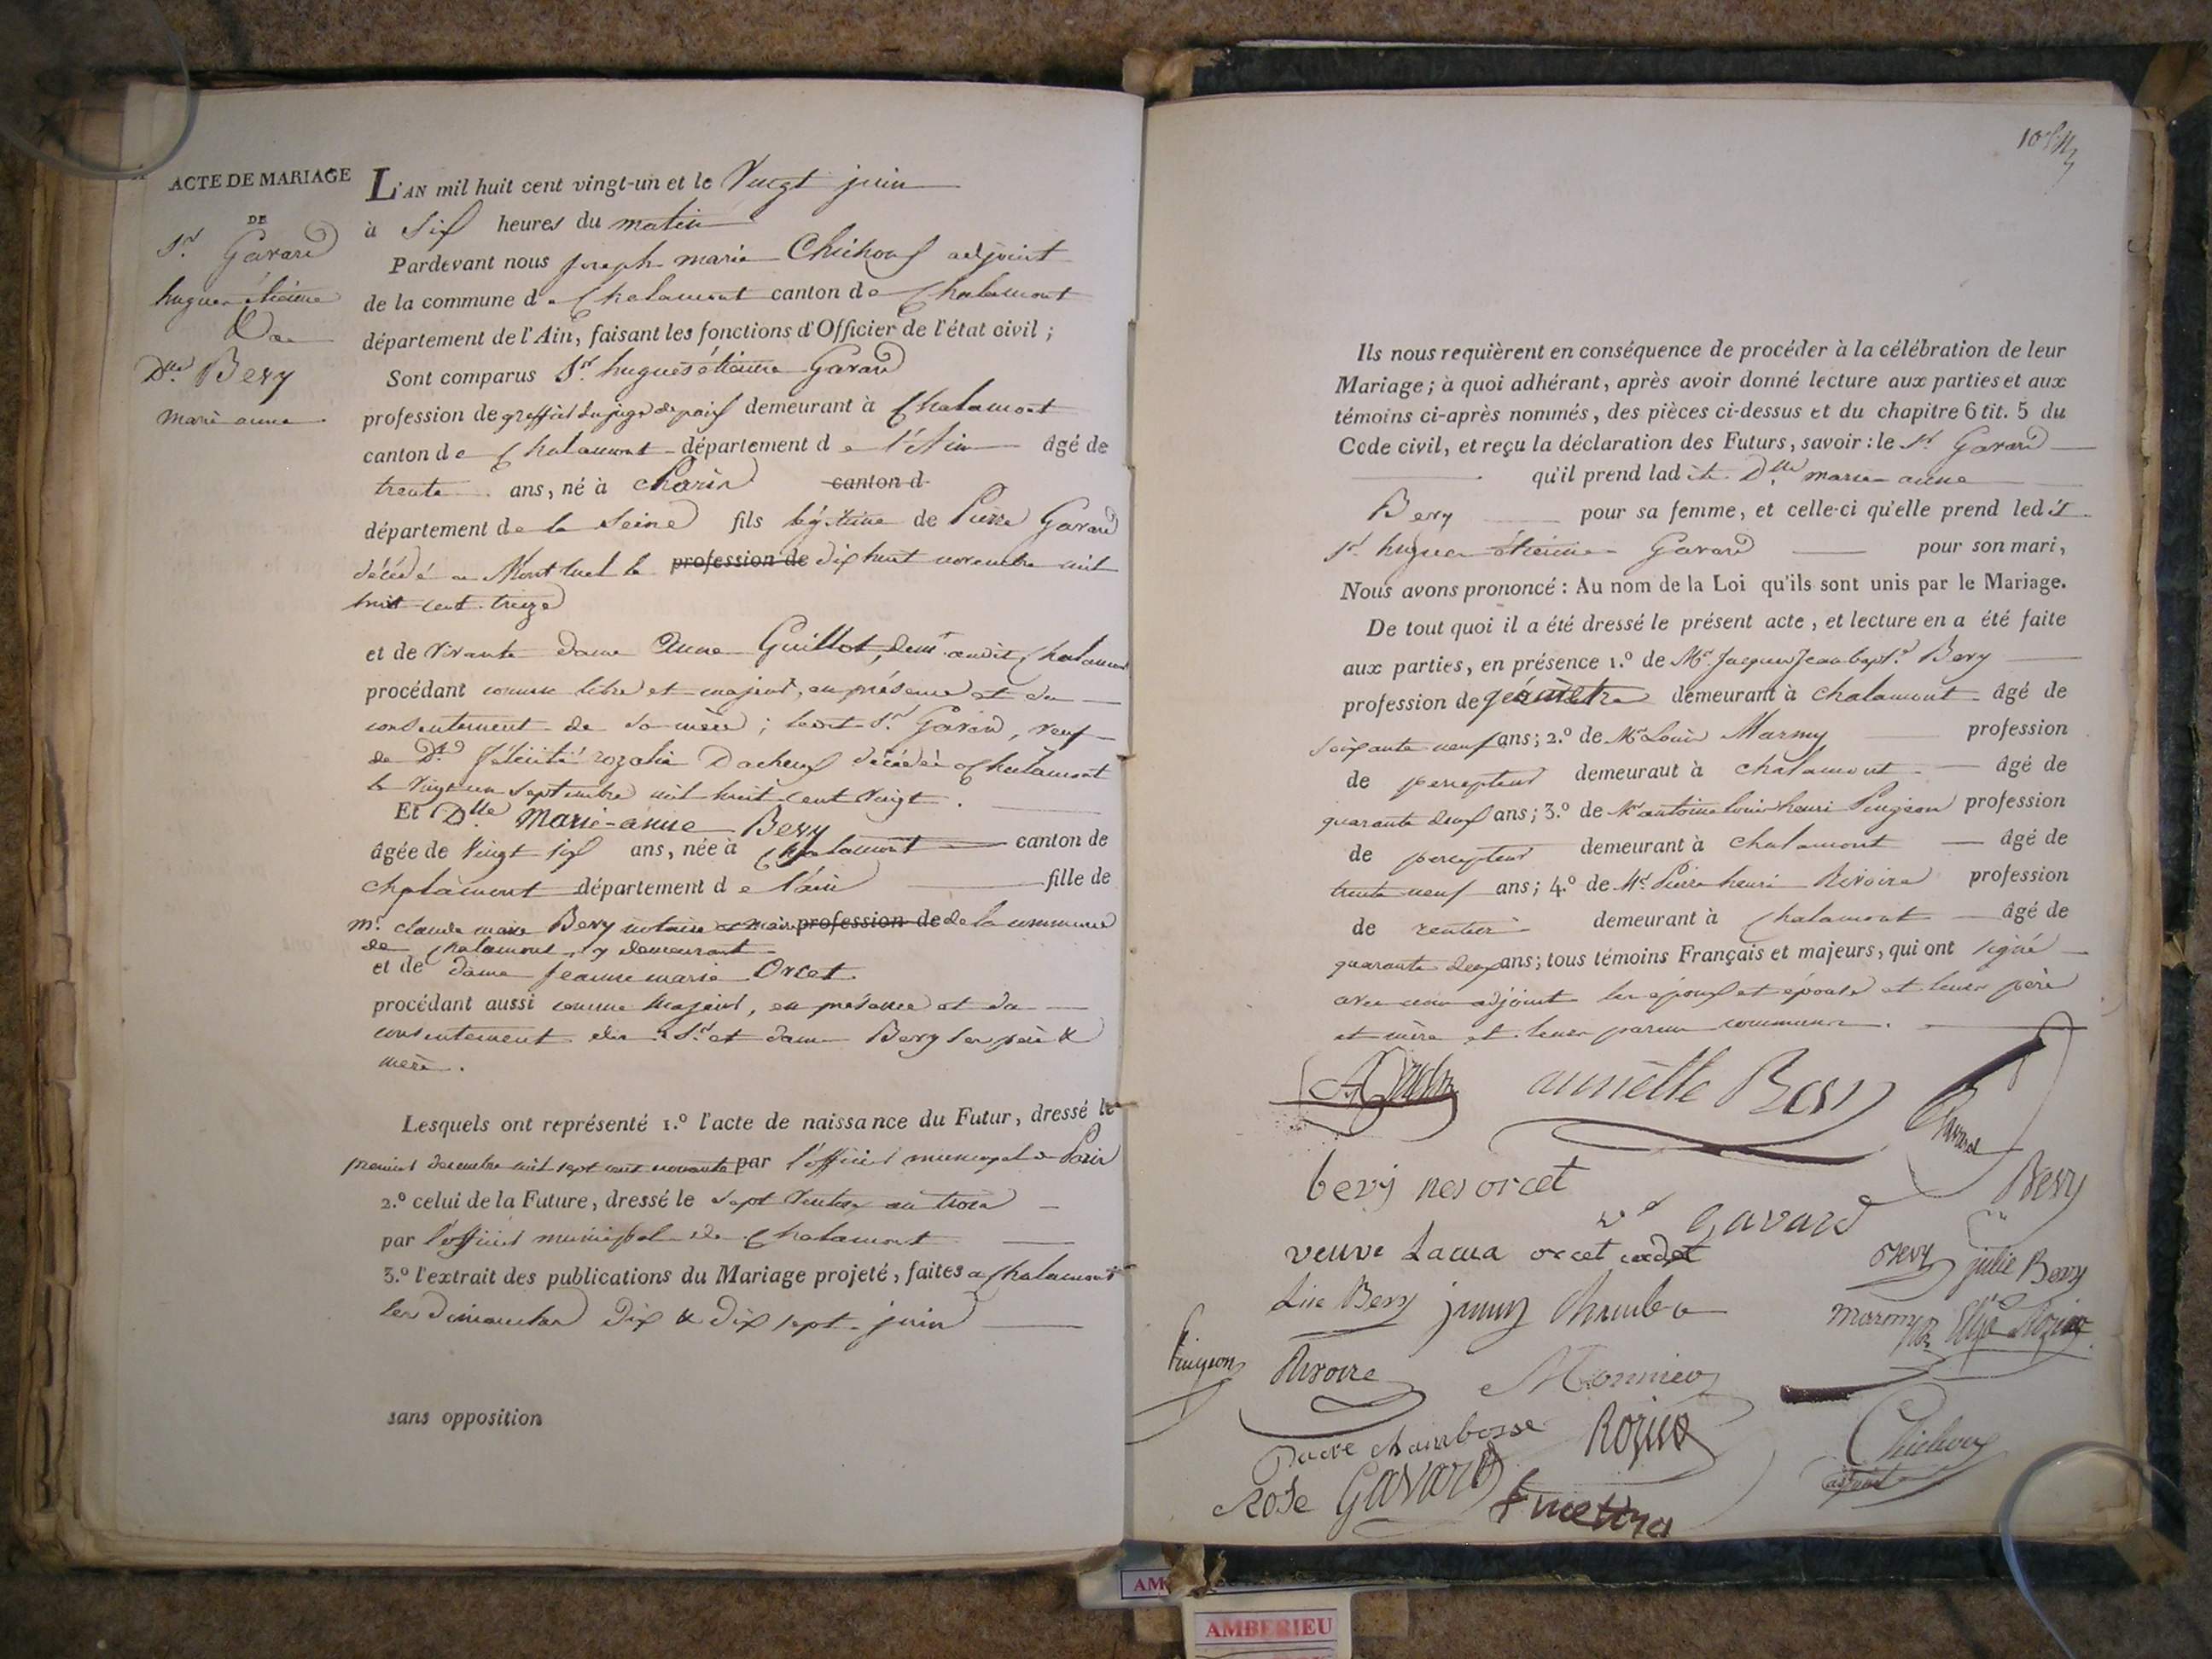 ACTE DE MARIAGE
DE
Sr. Gavard
hugues étienne
Dlle. Bevy
marie anne
L'AN mil huit cent vingt-un et le Vingt juin
à six heures du matin
Pardevant nous joseph marie Chichoux adjoint
de la commune de Chalamont canton de Chalamont
département de l'Ain, faisant les fonctions d'Officier de l'état civil ;
Sont comparus Sr. hugues étienne Gavard
profession de greffier du juge de paix demeurant à Chalamont
canton de Chalamont département de l'Ain âgé de
trente ans, né à Paris canton d
département de la Seine fils légitime de Pierre Gavard
décédé a Montluel le profession de dix huit novembre mil
huit cent treize
et de vivante dame Anne Guillot, demt. audit Chalamont
procédant comme libre et majeur, en présence et du
consentement de sa mère ; ledit Sr. Gavard, veuf
de De. félicité rozalie Dacheux décédée a Chalamont
le vingt un septembre mil huit cent vingt.
Et Dlle Marie-anne Bevy
âgée de Vingt six ans, née à Chalamont canton de
Chalamont département de l'ain fille de
mr. claude marie Bevy notaire et maire profession de de la commune
de Chalamont, y demeurant
et de dame jeanne marie Orcet
procédant aussi comme majeure, en présence et du
consentement des Sr. et dame Bevy ses père &
mère.
Lesquels ont représenté 1.º l'acte de naissance du Futur, dressé le
premier décembre mil sept cent novante par l'officier municipal de Paris
2.º celui de la Future, dressé le sept Ventose an trois
par l'officier municipal de Chalamont
3.º l'extrait des publications du Mariage projeté, faites a Chalamont
les dimanches dix & dix sept juin
sans opposition
Ils nous requièrent en conséquence de procéder à la célébration de leur
Mariage ; à quoi adhérant, après avoir donné lecture aux parties et aux
témoins ci-après nommés, des pièces ci-dessus et du chapitre 6 tit. 5 du
Code civil, et reçu la déclaration des Futurs, savoir : le Sr. Gavard
qu'il prend ladite Dlle. marie anne
Bevy pour sa femme, et celle-ci qu'elle prend ledit
Sr. hugues étienne Gavard pour son mari,
Nous avons prononcé : Au nom de la Loi qu'ils sont unis par le Mariage.
De tout quoi il a été dressé le présent acte, et lecture en a été faite
aux parties, en présence 1.º de Mr. Jacques Jean bapt.e Bevy
profession de géomètre demeurant à chalamont âgé de
soixante neuf ans ; 2.º de Mr. Louis Marmy profession
de percepteur demeuraut à chalamont âgé de
quarante deux ans ; 3.º de Mr. antoine louis henri Pingeon profession
de percepteur demeurant à chalamont âgé de
trente neuf ans ; 4.º de Mr. Pierre henri Rivoire profession
de rentier demeurant à Chalamont âgé de
quarante deux ans ; tous témoins Français et majeurs, qui ont signé
avec nous adjoint les époux et épouse et leurs père
et mère et leurs parens communs.
annette Bevy
Gavard
bevy née orcet
Bevy
ve Gavard
veuve Lacua orcet cadet
Bevy julie Bevy
Lise Bevy jenny
Marmy
Pingeon Rivoire Monnier
chambosse Rozier
Chichoux
adjoint
Rose Gavard
AMBERIEU